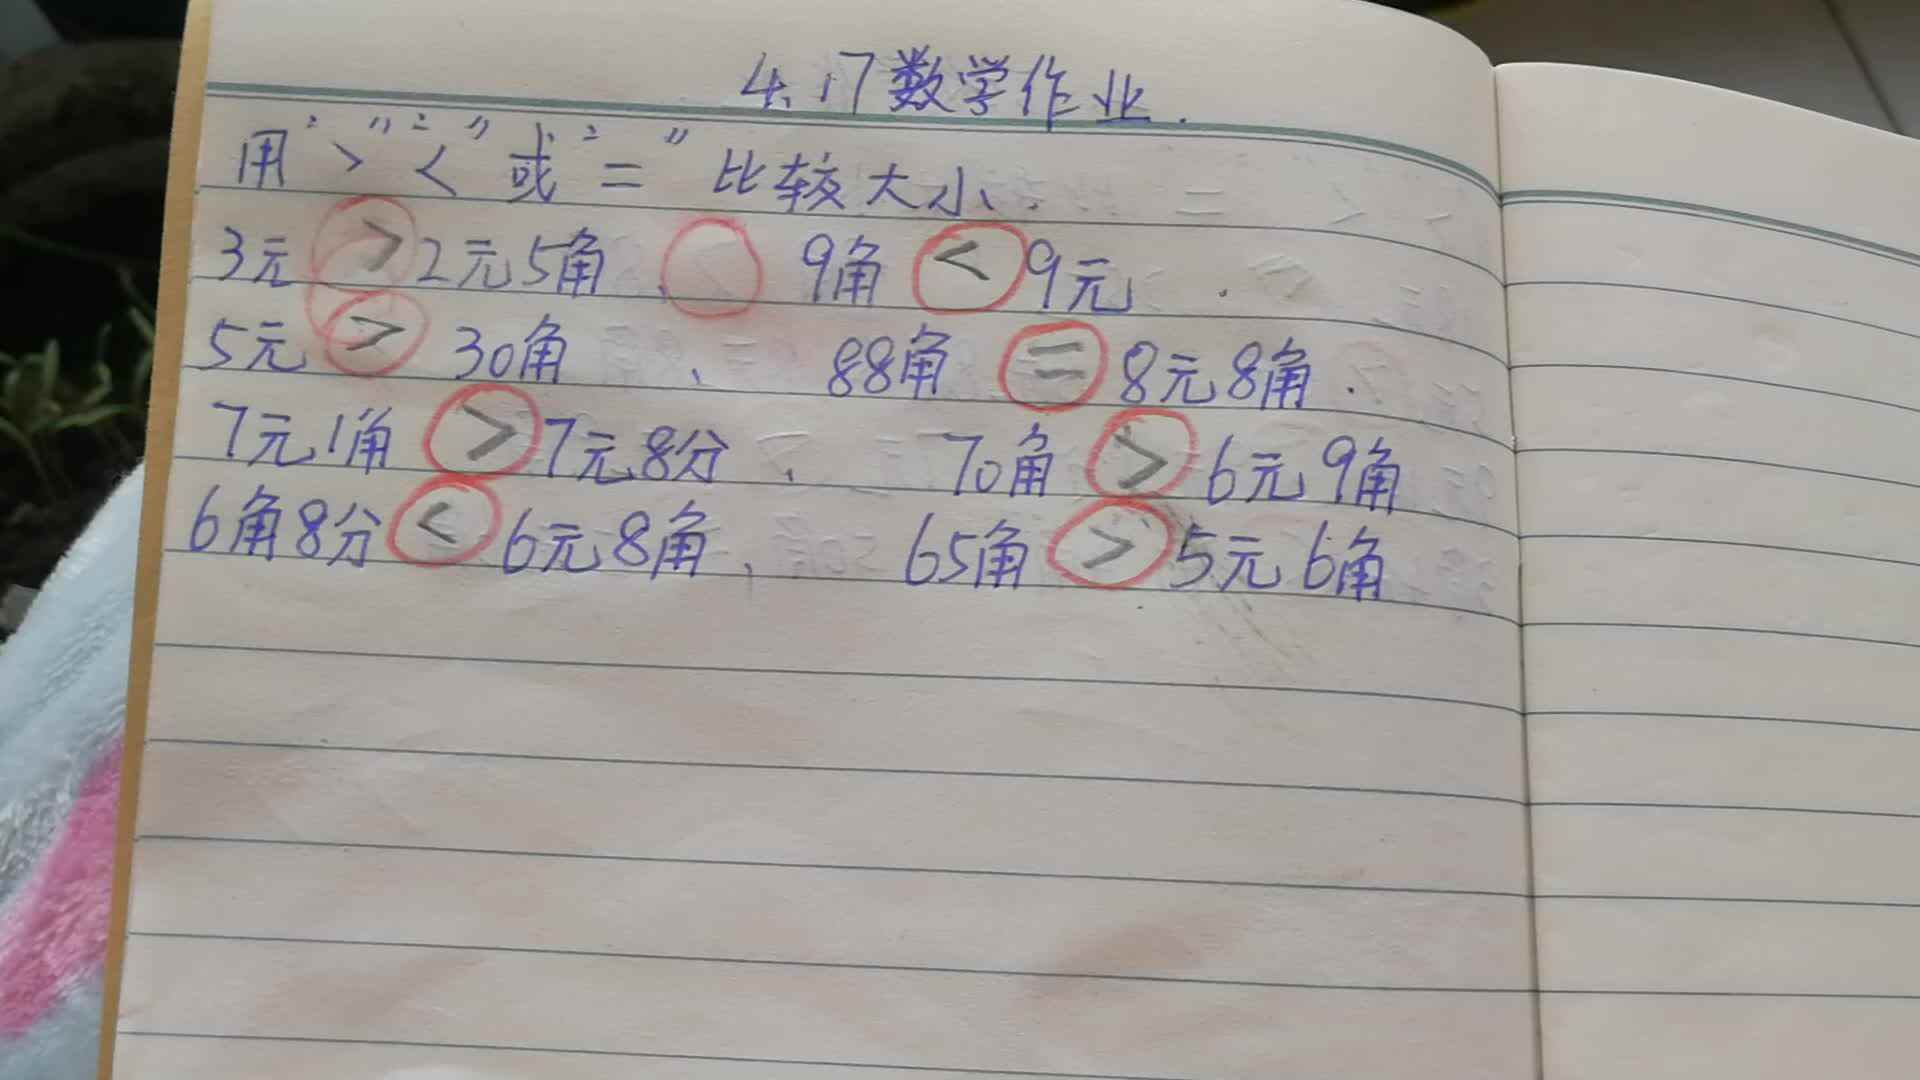 4.17数学作业.
用“>”“<”或“=”比较大小.
3元>2元5角、 9角<9元.
5元>30角、 88角=8元8角.
7元1角>7元8分、 70角>6元9角
6角8分<6元8角、 65角>5元6角